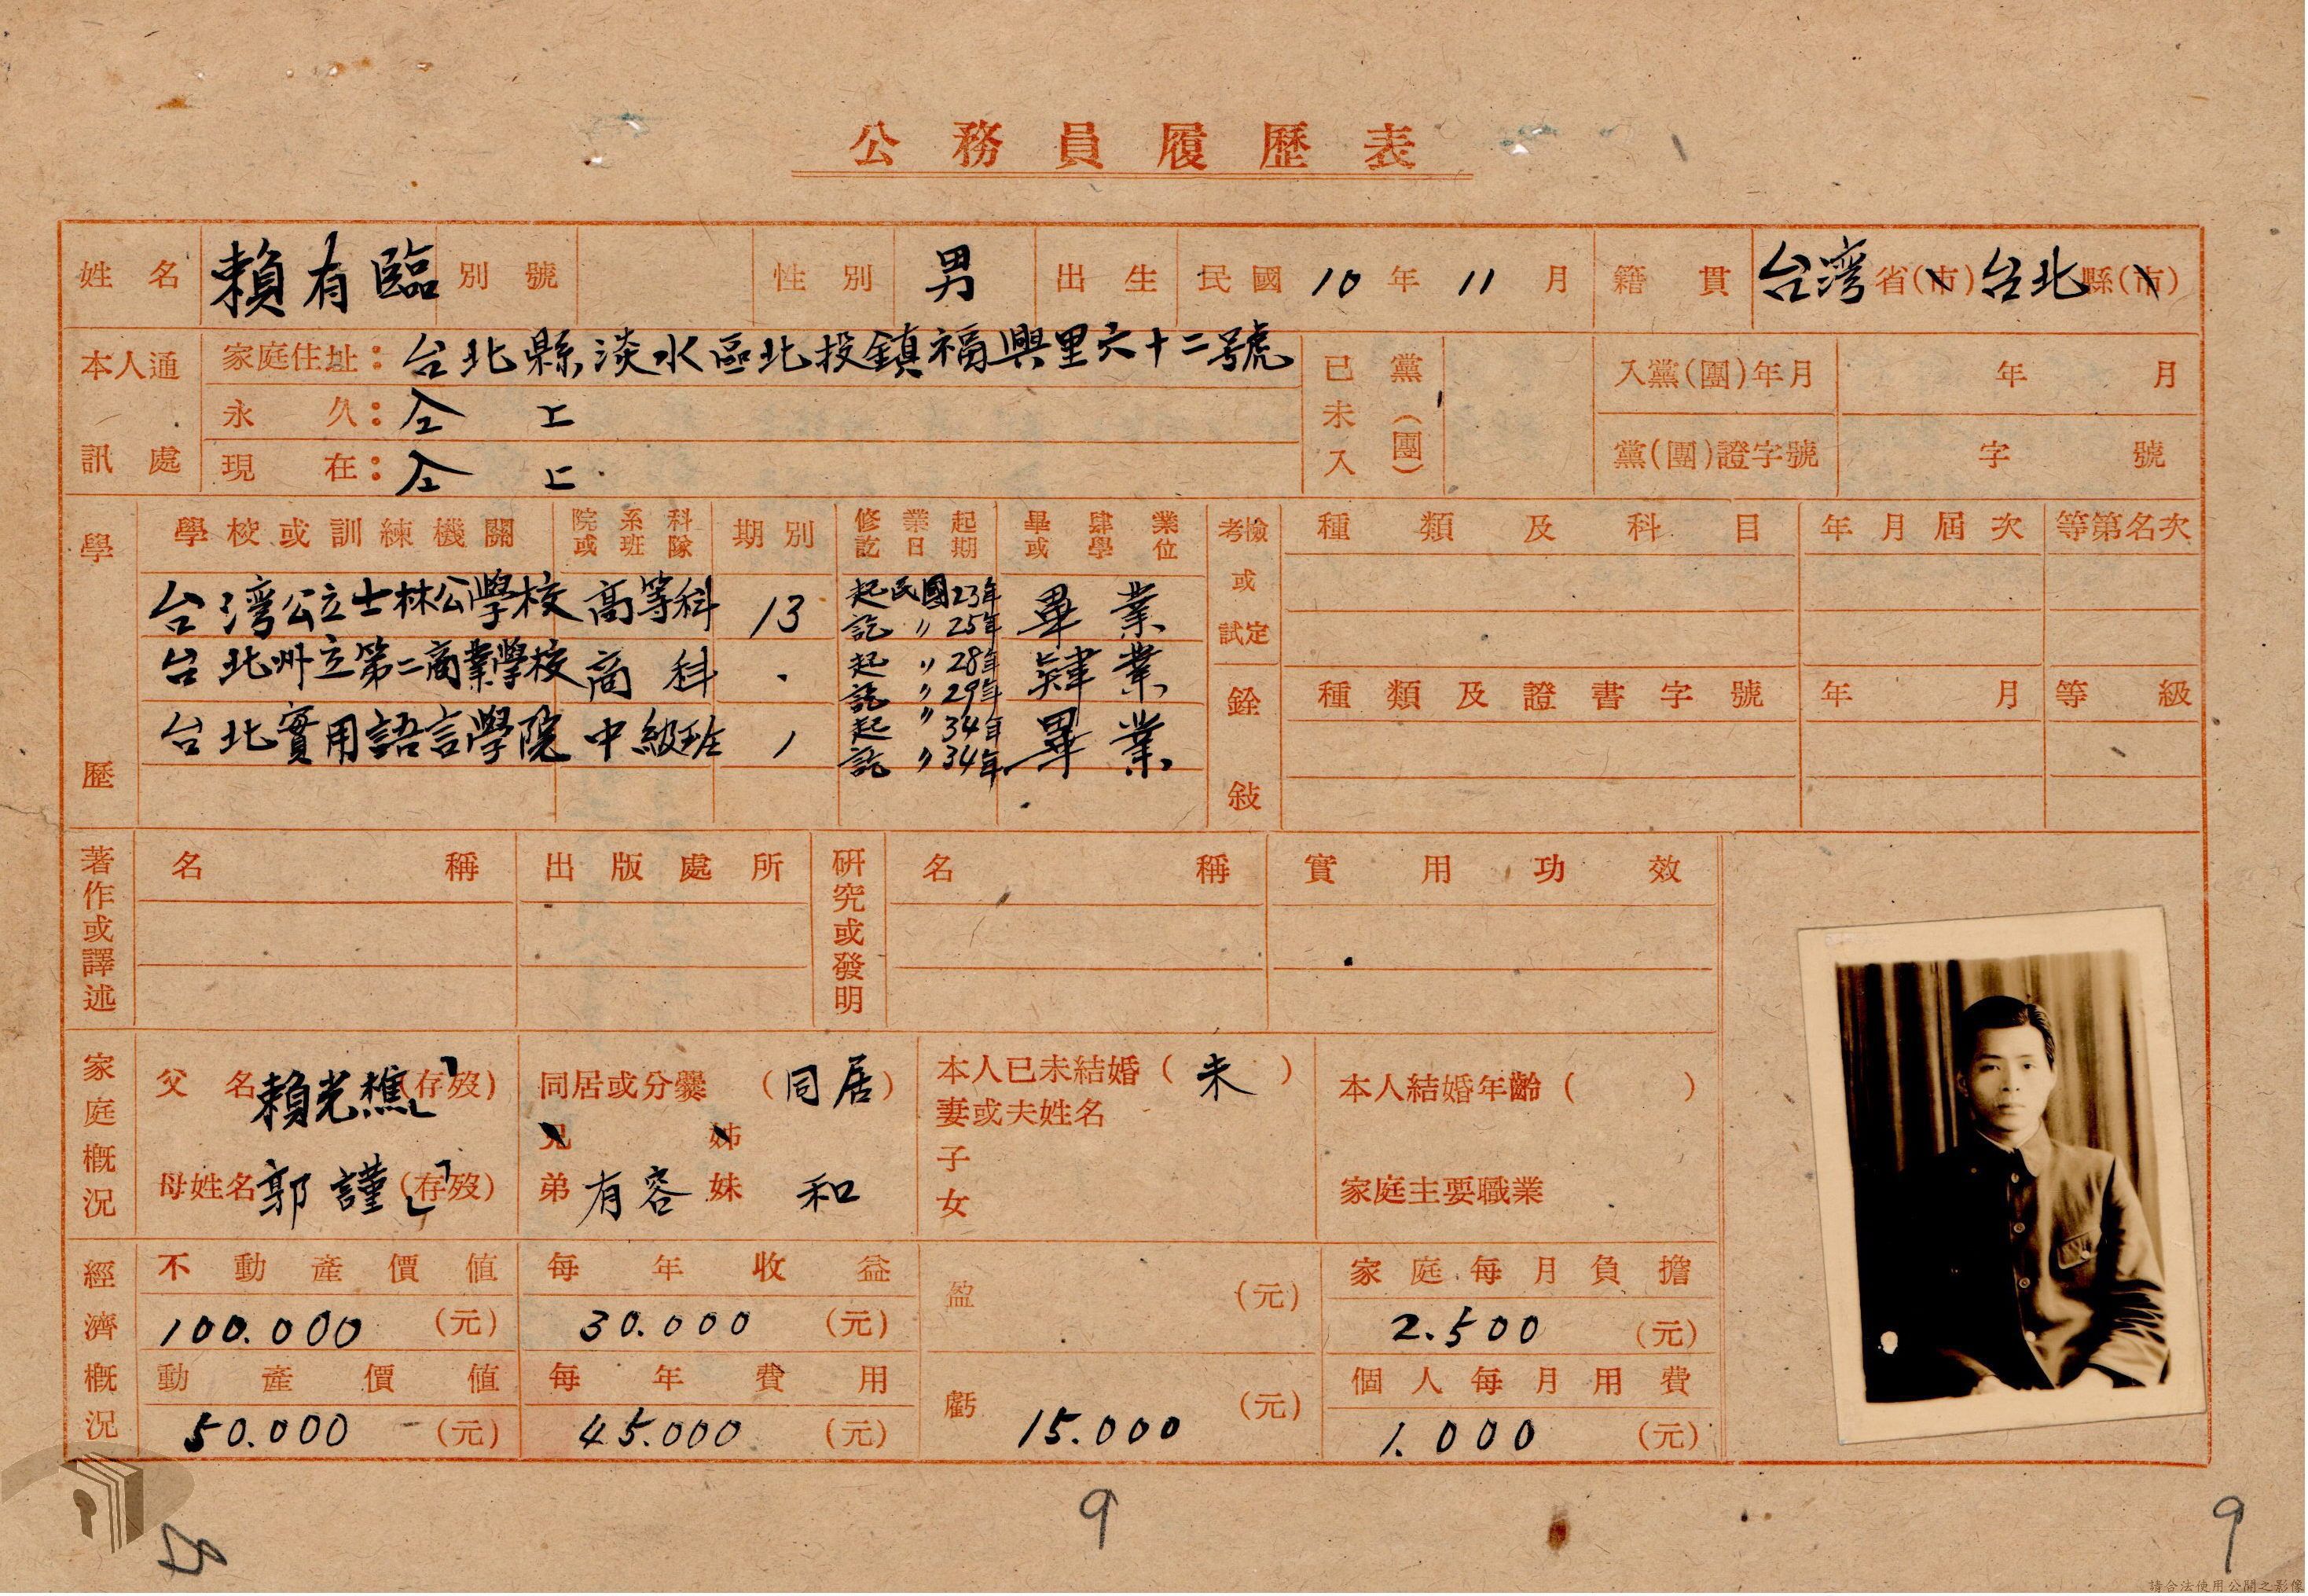 公務員履歷表
姓名 賴有臨 別號 性別 男 出生 民國 10 年 11 月 籍貫 台湾省(市)台北縣(市)
本人通訊處
家庭住址:台北縣淡水區北投鎮福興里六十二號
永久:仝上
現在:仝上
已未入黨(團)
入黨(團)年月 年 月
黨(團)證字號 字 號
學歷
學校或訓練機關 院系科或班隊 期別 修業起訖日期 畢肄業或學位
台湾公立士林公學校 高等科 13 起民國23年 訖〃25年 畢業
台北州立第二商業學校 商科 起〃28年 訖〃29年 肄業
台北實用語言學院 中級班 1 起〃34年 訖〃34年 畢業
考試或檢定
種類及科目 年月屆次 等第名次
銓敍
種類及證書字號 年月 等級
著作或譯述
名稱 出版處所
研究或發明
名稱 實用功效
家庭概況
父名 賴光樵(存歿) 同居或分爨(同居) 本人已未結婚(未) 本人結婚年齡( )
妻或夫姓名
兄 姊
母姓名 郭謹(存歿) 弟 有容 妹 和 子女 家庭主要職業
經濟概況
不動產價值 每年收益 盈 (元) 家庭每月負擔
100.000(元) 30.000(元) 2.500(元)
動產價值 每年費用 虧 15.000(元) 個人每月用費
50.000(元) 45.000(元) 1.000(元)
9
9
請合法使用公開之影像